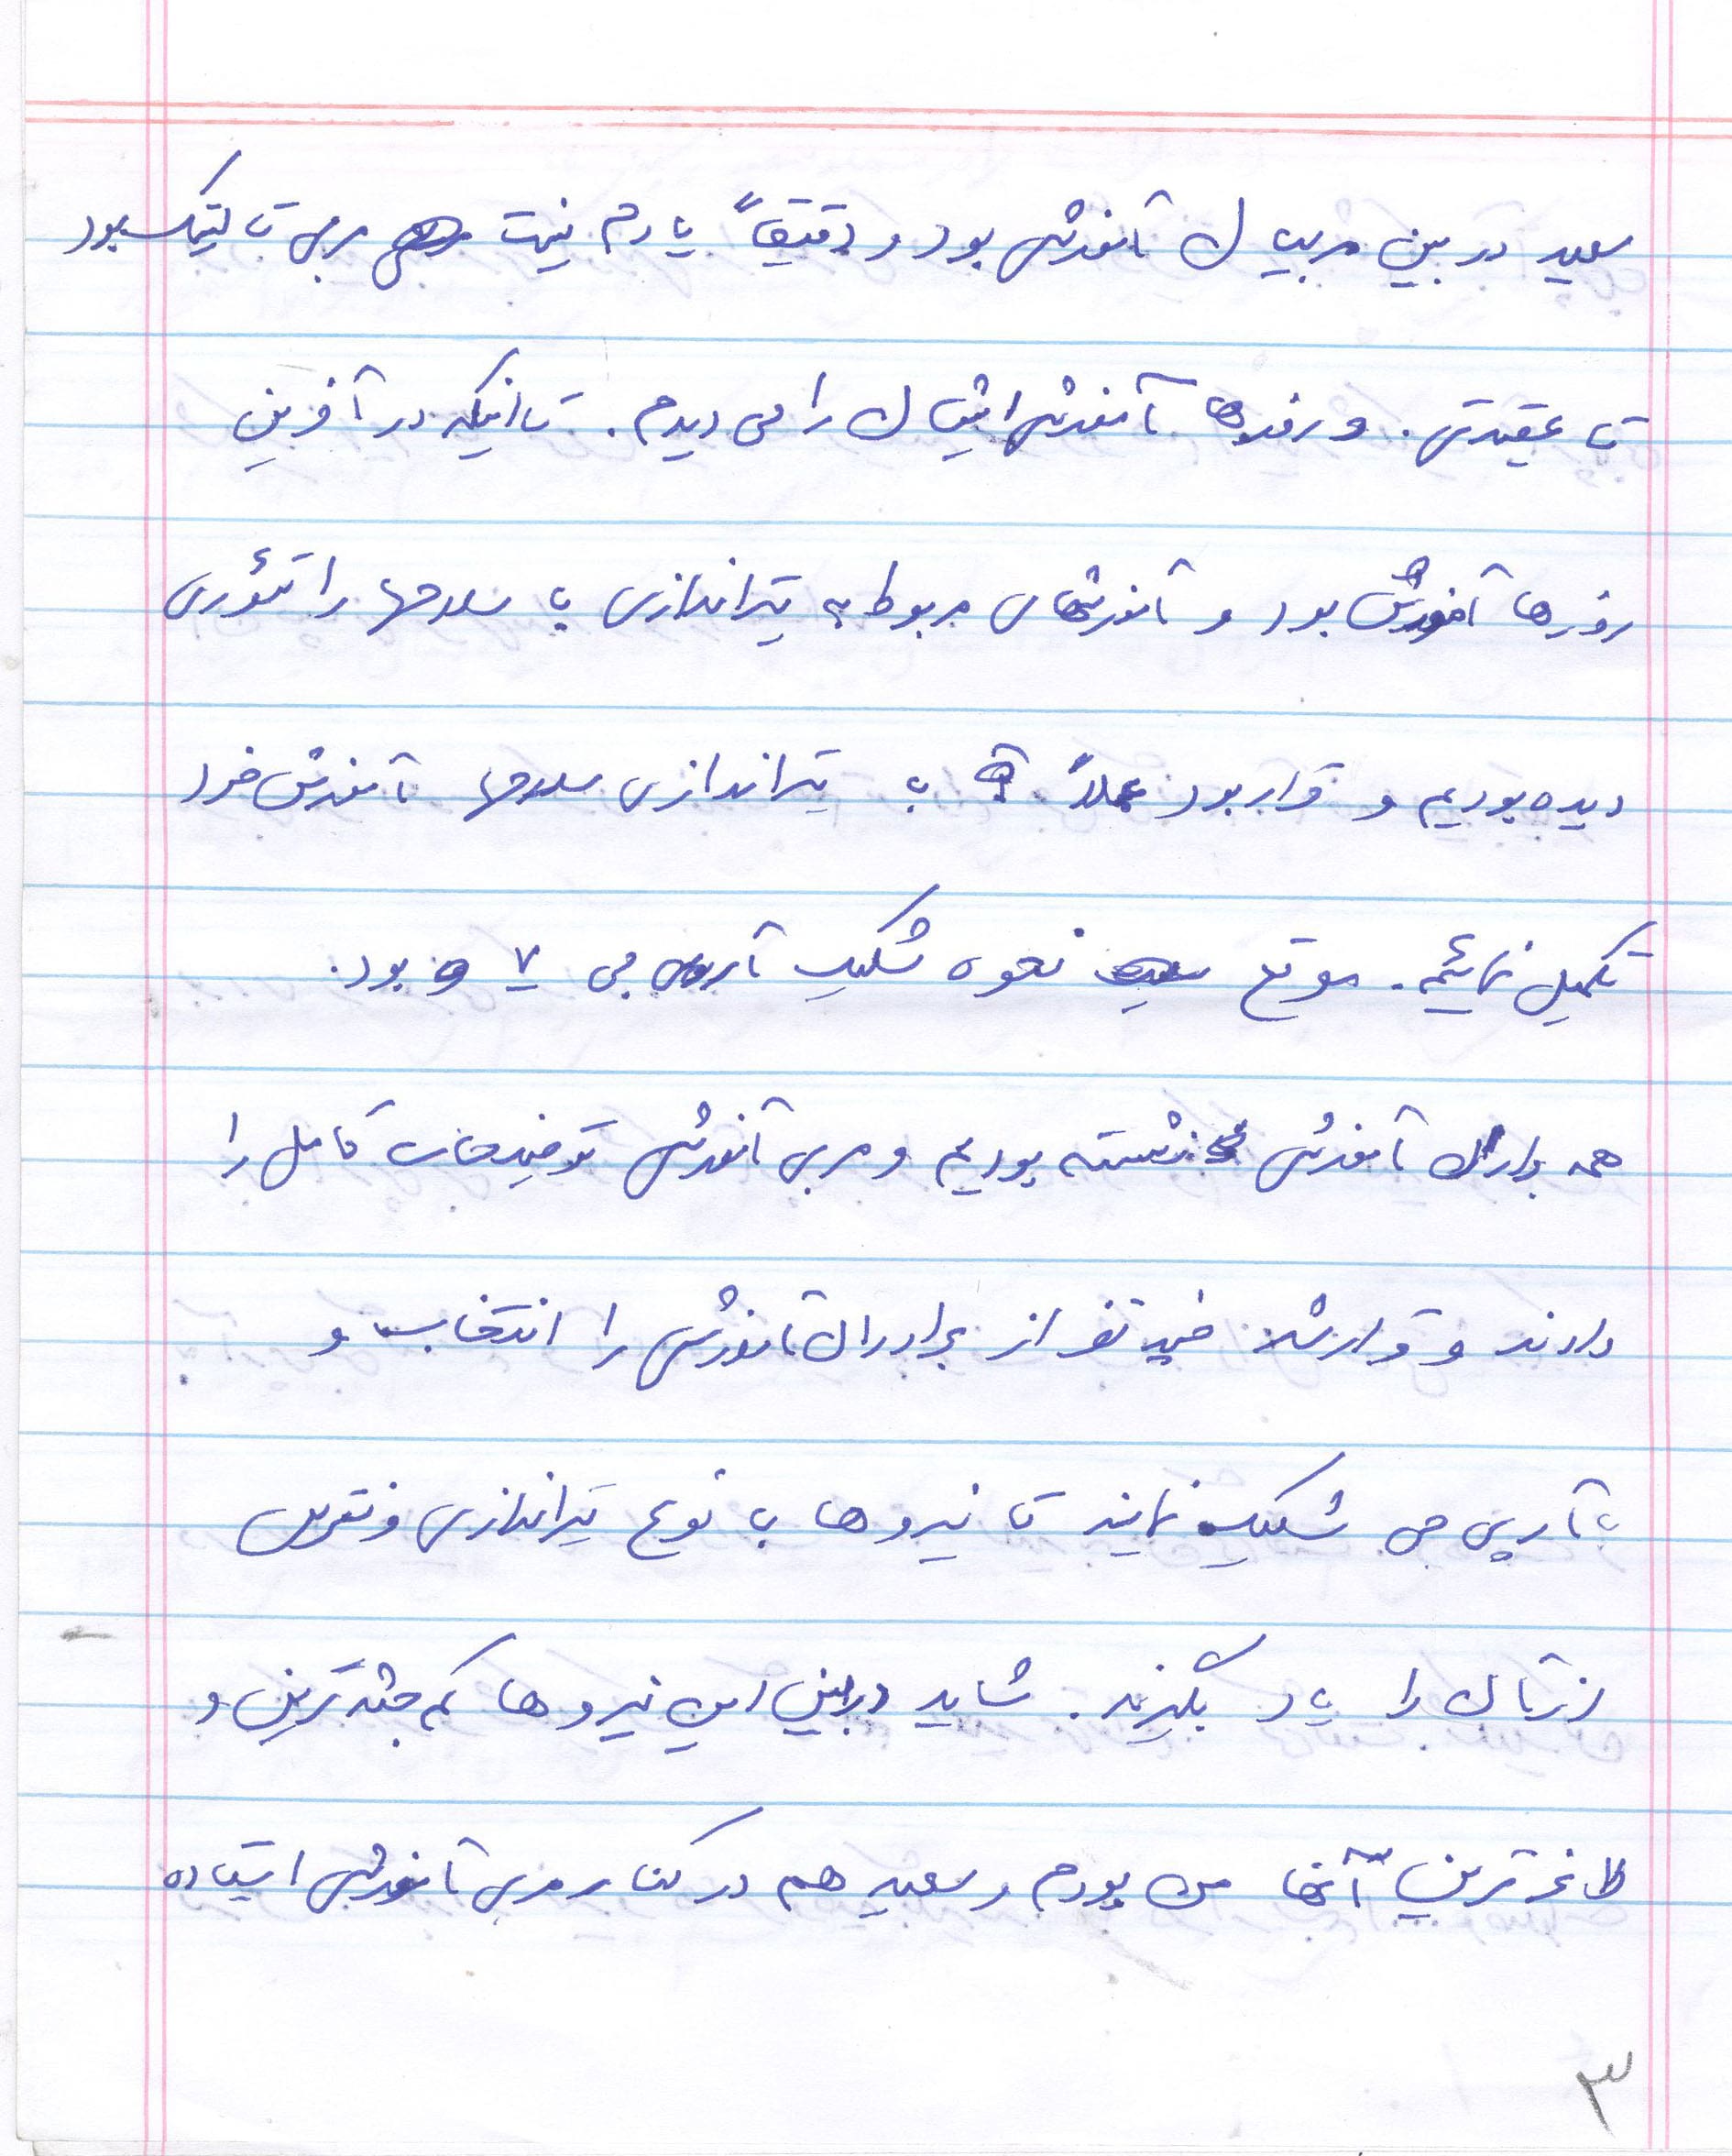 سعید در بین مربیان آموزش بود و دقیقاً یادم نیست مربی تاکتیک بود
تا عقیدتی. و روزها آموزش ایشان را می دیدم. تا اینکه در آخرین
روزها آموزش بود و آموزشهای مربوط به تیراندازی با سلاحها را تئوری
دیده بودیم و قرار بود عملاً با تیراندازی سلاحها آموزش خود
تکمیل نمائیم. موقع نحوه شلیک آر پی جی ۷ بود.
همه یاران آموزش نشسته بودیم و مربی آموزش توضیحات کامل را
دادند و قرار شد چند نفر از برادران آموزش را انتخاب و
با آر پی جی شلیک نمایند تا نیروها با نوع تیراندازی و نحوه
را یاد بگیرند. شاید در بین این نیروها کم جثه ترین و
لاغرترین آنها من بودم و سعید هم در کنار مربی آموزش ایستاده
۳